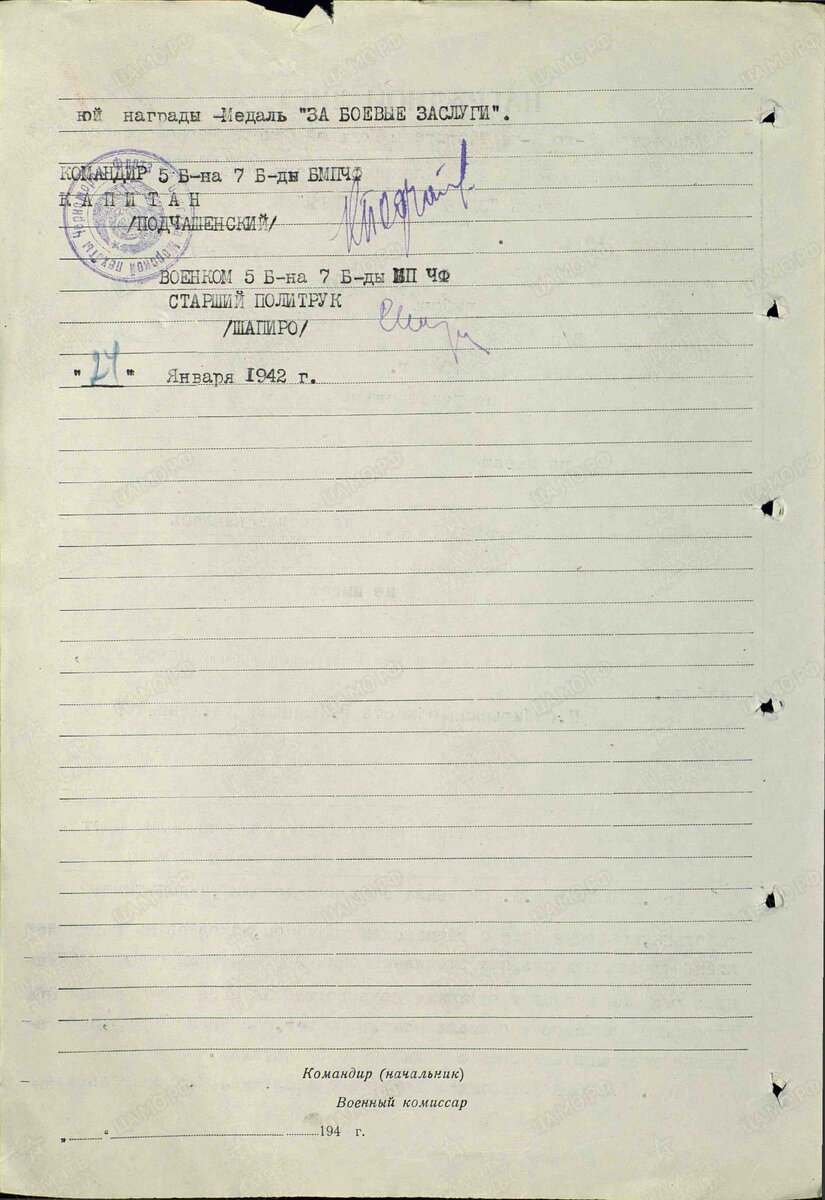 юй награды -Медаль "ЗА БОЕВЫЕ ЗАСЛУГИ".
КОМАНДИР 5 Б-на 7 Б-ды БМПЧФ
К А П И Т А Н
/ПОДЧАШЕНСКИЙ/
ВОЕНКОМ 5 Б-на 7 Б-ды МП ЧФ
СТАРШИЙ ПОЛИТРУК
/ШАПИРО/
"24" Января 1942 г.
Командир (начальник)
Военный комиссар
„ " 194 г.